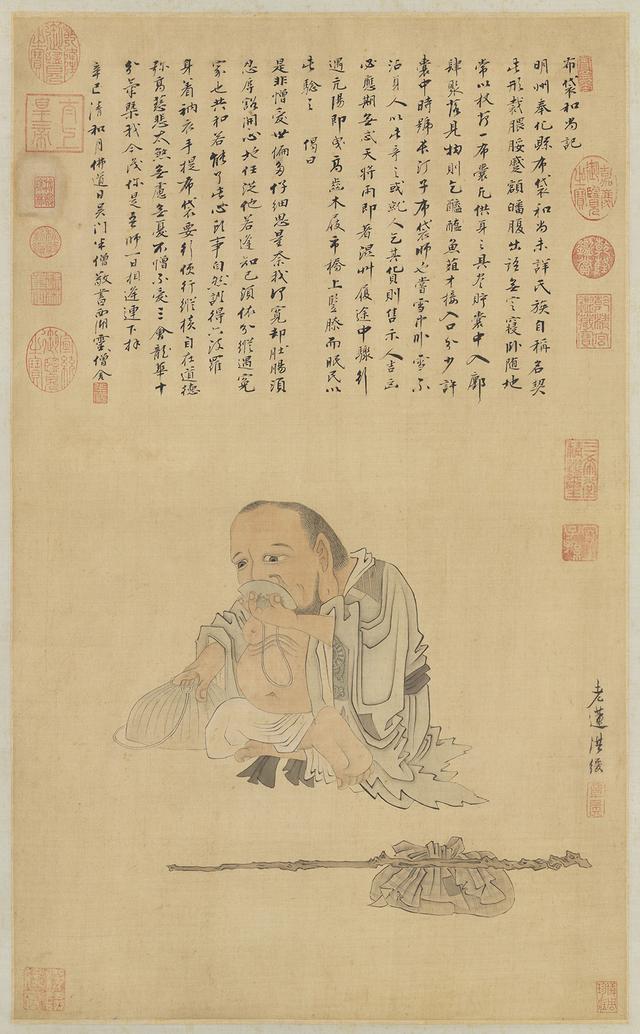 布袋和尚記
明州奉化縣布袋和尚未詳氏族自稱名契
此形裁腲脮蹙額皤腹出語無定寢卧隨地
常以杖荷一布囊凡供身之具盡貯囊中入鄽
肆聚落見物則乞醯醢魚葅才接入口分少許
囊中時號長汀子布袋師也嘗雪中卧雪不
沾身人以此奇之或就人乞其貨則售示人吉凶
必應期無忒天將雨即著濕草屨途中驟行
遇亢陽即曳高齒木屐市橋上豎膝而眠民以
此驗之 偈曰
是非憎愛世偏多仔細思量奈我何寬却肚腸須
忍辱豁開心地任從他若逢知己須依分縱遇冤
家也共和若能了此心頭事自然證得六波羅
身着衲衣手提布袋要行便行縱橫自在道德
弥高慈悲太煞無慮無憂不憎不愛三會龍華十
分氣槩我今識你是吾師一日相逢連下拜
辛巳清和月佛道日吳門半僧敬書西湖靈僧舍
老蓮洪綬
嘉慶御覽之寶
三希堂精鑑璽
宜子孫
乾隆御覽之寶
太上皇帝
宣統御覽之寶